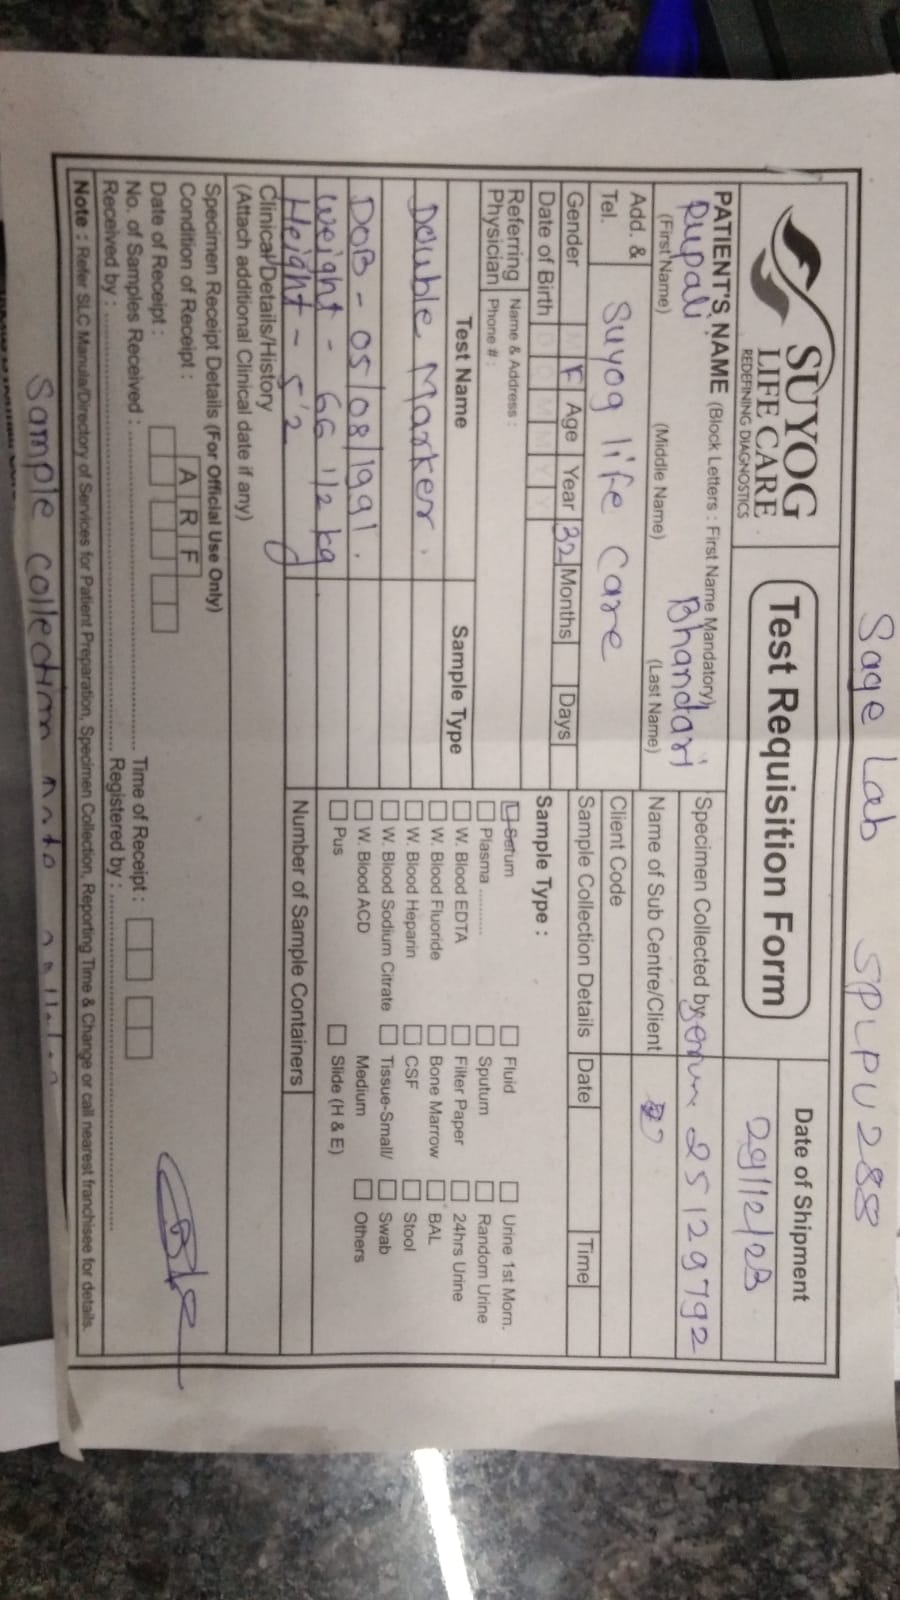 Sage Lab SPLPU288
SUYOG
LIFE CARE
REDEFINING DIAGNOSTICS
Test Requisition Form
Date of Shipment
29/12/23
PATIENT'S NAME (Block Letters : First Name Mandatory)
Rupali Bhandari
(First Name) (Middle Name) (Last Name)
Specimen Collected by serum 25129792
Add. &
Tel.
Suyog life care
Name of Sub Centre/Client
Client Code
Gender M F Age Year 32 Months Days
Sample Collection Details Date Time
Date of Birth D D M M Y Y
Referring
Physician
Name & Address :
Phone # :
Test Name Sample Type
Double Marker.
DOB - 05/08/1991.
Weight - 66 1/2 kg
Height - 5'2
Sample Type :
Serum Fluid Urine 1st Morn.
Plasma ............ Sputum Random Urine
W. Blood EDTA Filter Paper 24hrs Urine
W. Blood Fluoride Bone Marrow BAL
W. Blood Heparin CSF Stool
W. Blood Sodium Citrate Tissue-Small/ Swab
W. Blood ACD Medium Others
Pus Slide (H & E)
Number of Sample Containers
Clinical Details/History
(Attach additional Clinical date if any)
Specimen Receipt Details (For Official Use Only)
Condition of Receipt : A R F
Date of Receipt : Time of Receipt :
No. of Samples Received : Registered by :
Received by :
Note : Refer SLC Manula/Directory of Services for Patient Preparation, Specimen Collection, Reporting Time & Change or call nearest franchisee for details.
Sample collection